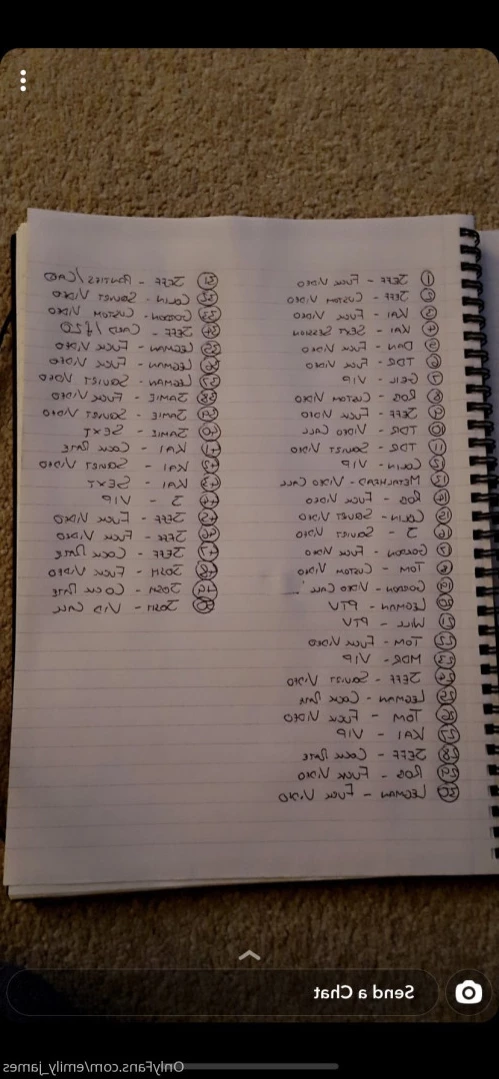 1 JEFF - FUCK VIDEO
2 JEFF - CUSTOM VIDEO
3 KAI - FUCK VIDEO
4 KAI - SEXT SESSION
5 DAN - FUCK VIDEO
6 TDR - FUCK VIDEO
7 - VIP
8 ROB - CUSTOM VIDEO
9 JEFF - FUCK VIDEO
10 TDR - VIDEO CALL
11 TDR - SQUIRT VIDEO
COLIN - VIP
METHHEAD - VIDEO CALL
ROB - FUCK VIDEO
COLIN - SQUIRT VIDEO
J - SQUIRT VIDEO
GORDON - FUCK VIDEO
TOM - CUSTOM VIDEO
GORDON - VIDEO CALL
LEGMAN - PTV
WILL - PTV
TOM - FUCK VIDEO
MDR - VIP
JEFF - SQUIRT VIDEO
LEGMAN - COCK RATE
TOM - FUCK VIDEO
KAI - VIP
JEFF - COCK RATE
ROB - FUCK VIDEO
LEGMAN - FUCK VIDEO
JEFF - PANTIES/CARD
COLIN - SQUIRT VIDEO
GORDON - CUSTOM VIDEO
JEFF - CARD/£20
LEGMAN - FUCK VIDEO
LEGMAN - FUCK VIDEO
LEGMAN - SQUIRT VIDEO
JAMIE - FUCK VIDEO
JAMIE - SQUIRT VIDEO
JAMIE - SEXT
KAI - COCK RATE
KAI - SQUIRT VIDEO
KAI - SEXT
J - VIP
JEFF - FUCK VIDEO
JEFF - FUCK VIDEO
JEFF - COCK RATE
JOSH - FUCK VIDEO
JOSH - COCK RATE
JOSH - VID CALL
Send a Chat
OnlyFans.com/emily_james